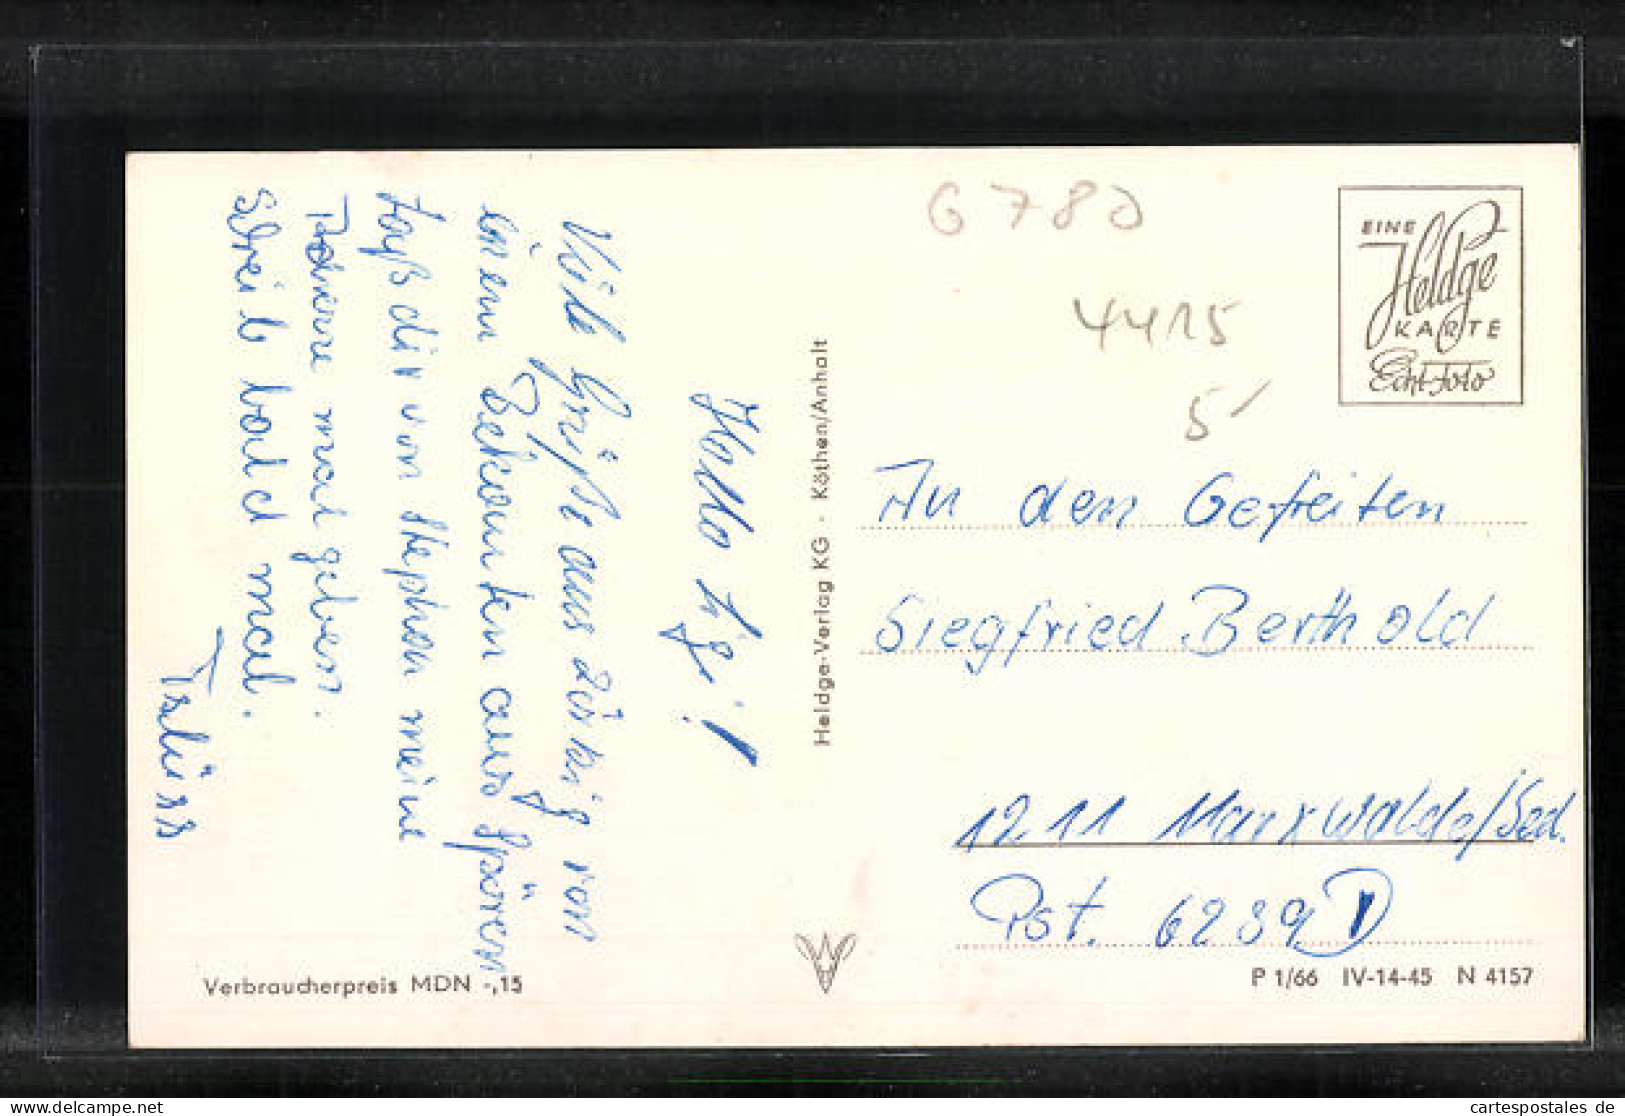 Viele Grüße aus Zörbig von
einem Bekannten aus Spören
laß dir von Stephan meine
mal geben.
Schreib bald mal.
Heldge-Verlag KG - Köthen/Anhalt
G 780
4415
5
EINE
Heldge
KARTE
Echt Foto
An den Gefreiten
Siegfried Berthold
1211 Marxwalde/Sed.
Pst. 6239 D
Verbraucherpreis MDN -,15
P 1/66 IV-14-45 N 4157
www.cartespostales.de
cartespostales de